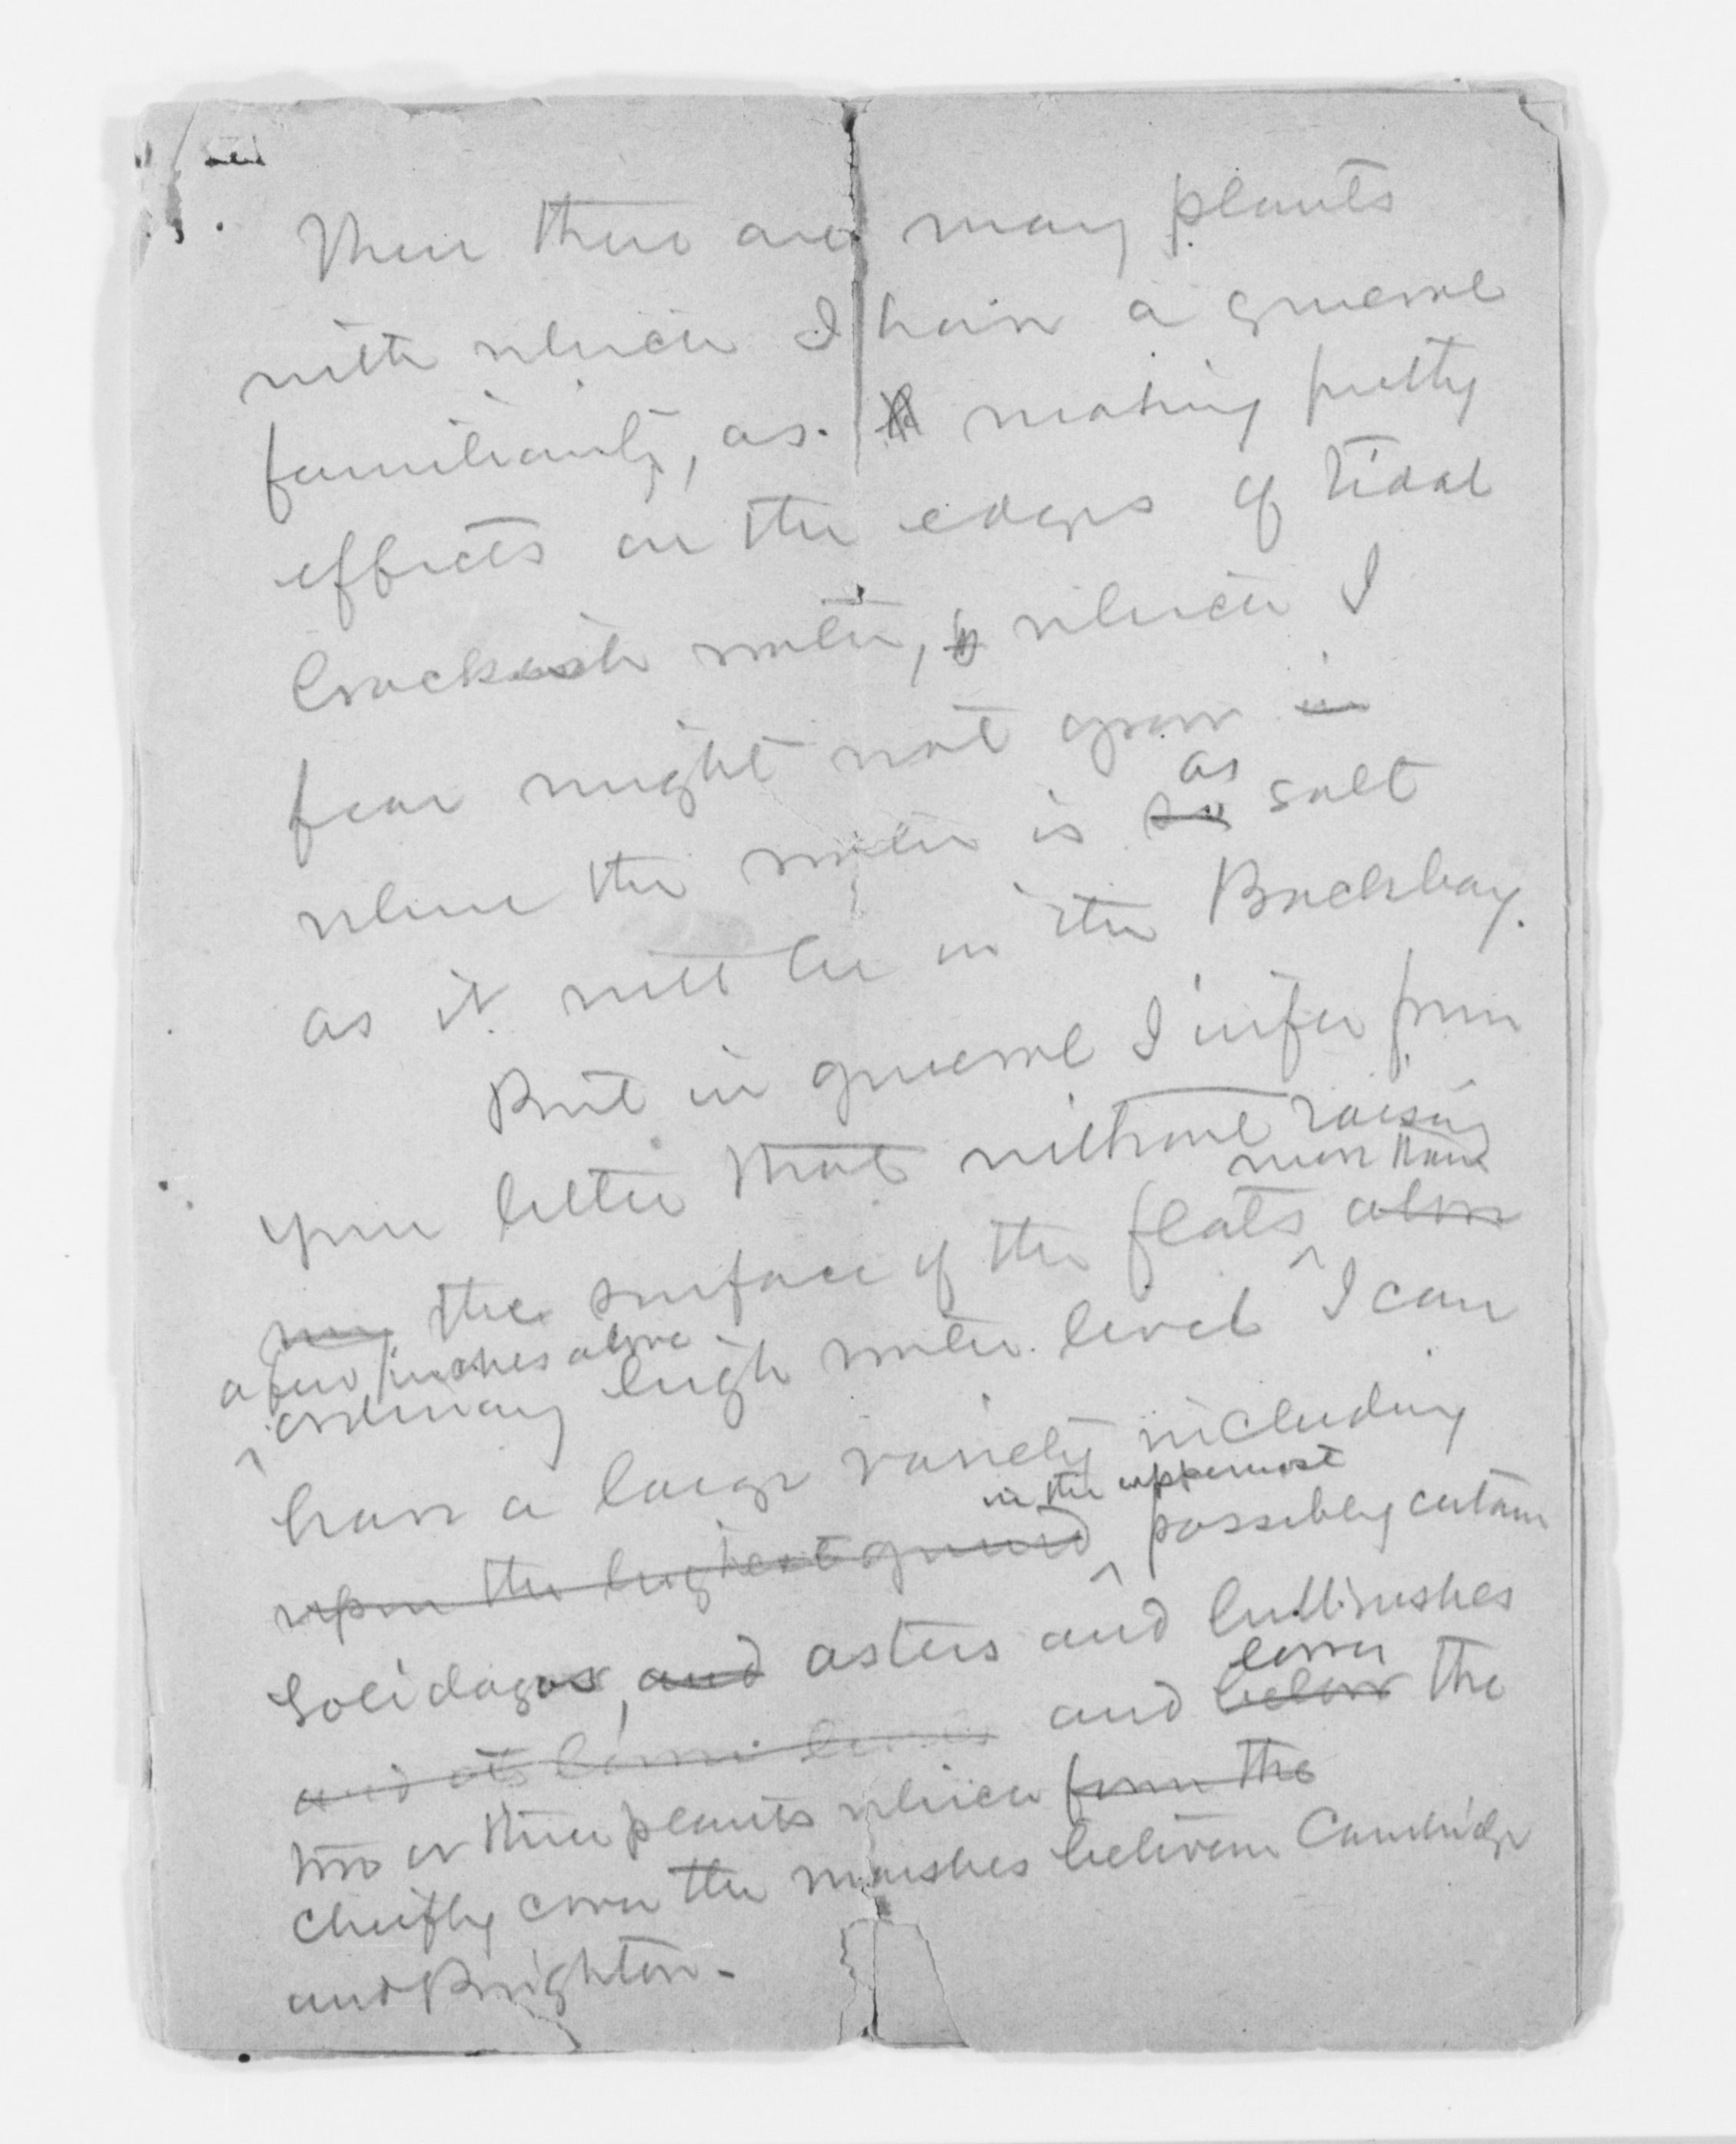 Then there are many plants
with which I have a general
familiarity, as making pretty
effects on the edges of tidal
brackish water, which I
fear might not grow in
where the water is so as salt
as it will be in the Backbay.
But in general I infer from
your letter that without raising
more than
the surface of the flats
a few inches above
ordinary high water level I can
have a large variety including
in the uppermost
upon the highest ground possibly certain
Solidagos, and asters and bullrushes
lower
and below the
two or three plants which form the
chiefly cover the marshes between Cambridge
and Brighton-